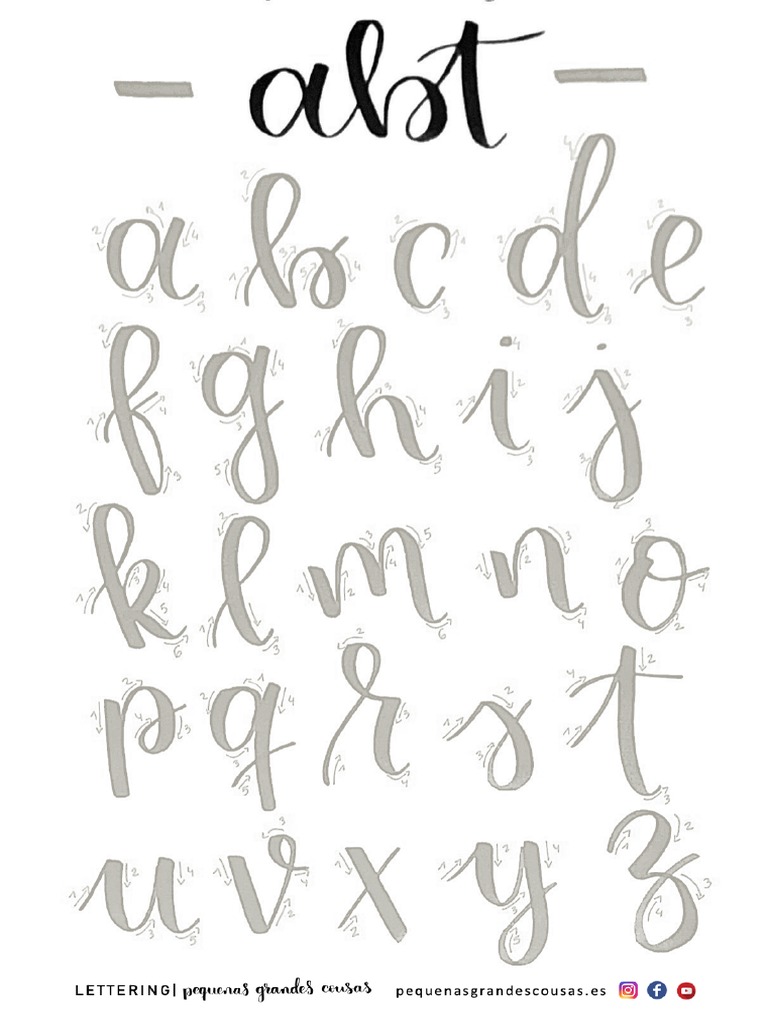 abt
a b c d e
f g h i j
k l m n o
p q r s t
u v x y z
LETTERING| pequenas grandes cousas pequenasgrandescousas.es